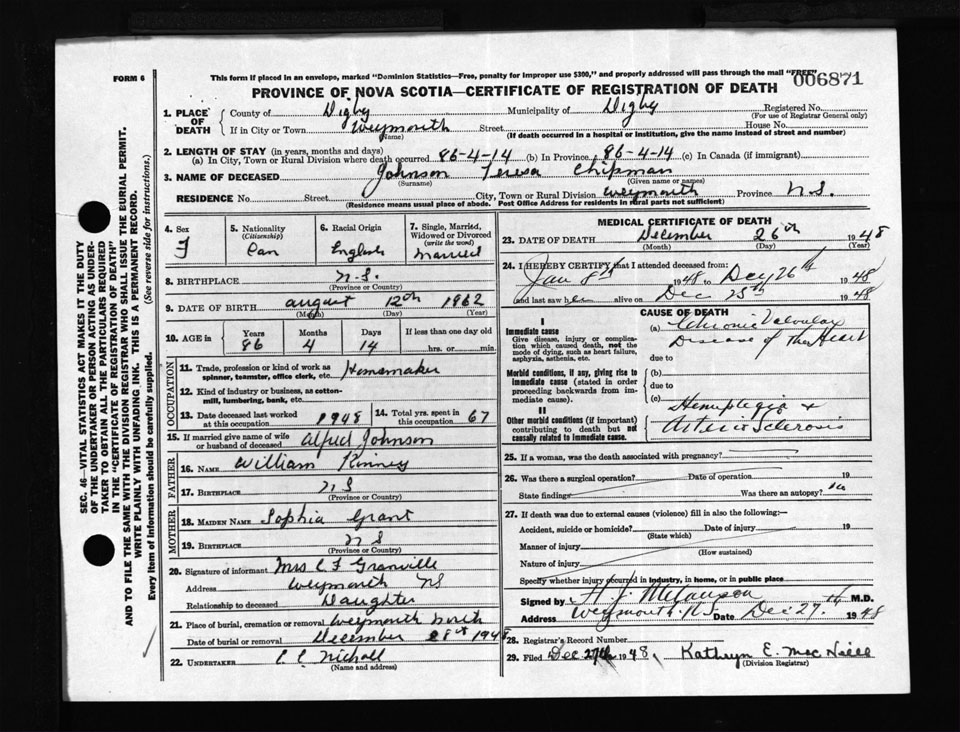 FORM 6
This form if placed in an envelope, marked "Dominion Statistics—Free, penalty for improper use $300," and properly addressed will pass through the mail "FREE"
006871
PROVINCE OF NOVA SCOTIA—CERTIFICATE OF REGISTRATION OF DEATH
1. PLACE OF DEATH { County of Digby Municipality of Digby Registered No.
(For use of Registrar General only)
If in City or Town Weymouth Street House No.
(Name) (If death occurred in a hospital or institution, give the name instead of street and number)
2. LENGTH OF STAY (in years, months and days)
(a) In City, Town or Rural Division where death occurred 86-4-14 (b) In Province 86-4-14 (c) In Canada (if immigrant)
3. NAME OF DECEASED Johnson Teresa Chipman
(Surname) (Given name or names)
RESIDENCE No. Street City, Town or Rural Division Weymouth Province N.S.
(Residence means usual place of abode. Post Office Address for residents in rural parts not sufficient)
4. Sex
F
5. Nationality
(Citizenship)
Can
6. Racial Origin
English
7. Single, Married, Widowed or Divorced
(write the word)
Married
8. BIRTHPLACE N.S.
(Province or Country)
9. DATE OF BIRTH August 12th 1862
(Month) (Day) (Year)
10. AGE in { Years Months Days If less than one day old
86 4 14 hrs. or min.
OCCUPATION
11. Trade, profession or kind of work as spinner, teamster, office clerk, etc. Homemaker
12. Kind of industry or business, as cotton-mill, lumbering, bank, etc.
13. Date deceased last worked at this occupation 1948
14. Total yrs. spent in this occupation 67
15. If married give name of wife or husband of deceased Alfred Johnson
FATHER
16. NAME William Kinney
17. BIRTHPLACE N S
(Province or Country)
MOTHER
18. MAIDEN NAME Sophia Grant
19. BIRTHPLACE N S
(Province or Country)
20. Signature of informant Mrs C F Granville
Address Weymouth NS
Relationship to deceased Daughter
21. Place of burial, cremation or removal Weymouth North
Date of burial or removal December 28th 1948
22. UNDERTAKER C C Nichall
(Name and address)
MEDICAL CERTIFICATE OF DEATH
23. DATE OF DEATH December 26th 1948
(Month) (Day) (Year)
24. I HEREBY CERTIFY that I attended deceased from:
Jan 8th 1948 to Dec 26th 1948
and last saw her alive on Dec 25th 1948
CAUSE OF DEATH
I
Immediate cause
Give disease, injury or complication which caused death, not the mode of dying, such as heart failure, asphyxia, asthenia, etc.
(a) Chronic Valvular
Disease of the Heart
due to
Morbid conditions, if any, giving rise to immediate cause (stated in order proceeding backwards from immediate cause).
(b)
due to
(c)
II
Other morbid conditions (if important) contributing to death but not causally related to immediate cause.
Hemiplegia &
Arterio Sclerosis
25. If a woman, was the death associated with pregnancy?
26. Was there a surgical operation? Date of operation 19
State findings Was there an autopsy? no
27. If death was due to external causes (violence) fill in also the following:—
Accident, suicide or homicide? Date of injury 19
(State which)
Manner of injury
(How sustained)
Nature of injury
Specify whether injury occurred in industry, in home, or in public place
Signed by M.D.
Address Weymouth N.S. Date Dec 27th 1948
28. Registrar's Record Number
29. Filed Dec 27th 1948, Kathryn E. MacNiell
(Division Registrar)
SEC. 46—VITAL STATISTICS ACT MAKES IT THE DUTY
OF THE UNDERTAKER OR PERSON ACTING AS UNDER-
TAKER TO OBTAIN ALL THE PARTICULARS REQUIRED
IN THE "CERTIFICATE OF REGISTRATION OF DEATH"
AND TO FILE THE SAME WITH THE DIVISION REGISTRAR WHO SHALL ISSUE THE BURIAL PERMIT.
WRITE PLAINLY WITH UNFADING INK. THIS IS A PERMANENT RECORD.
Every item of information should be carefully supplied. (See reverse side for instructions.)